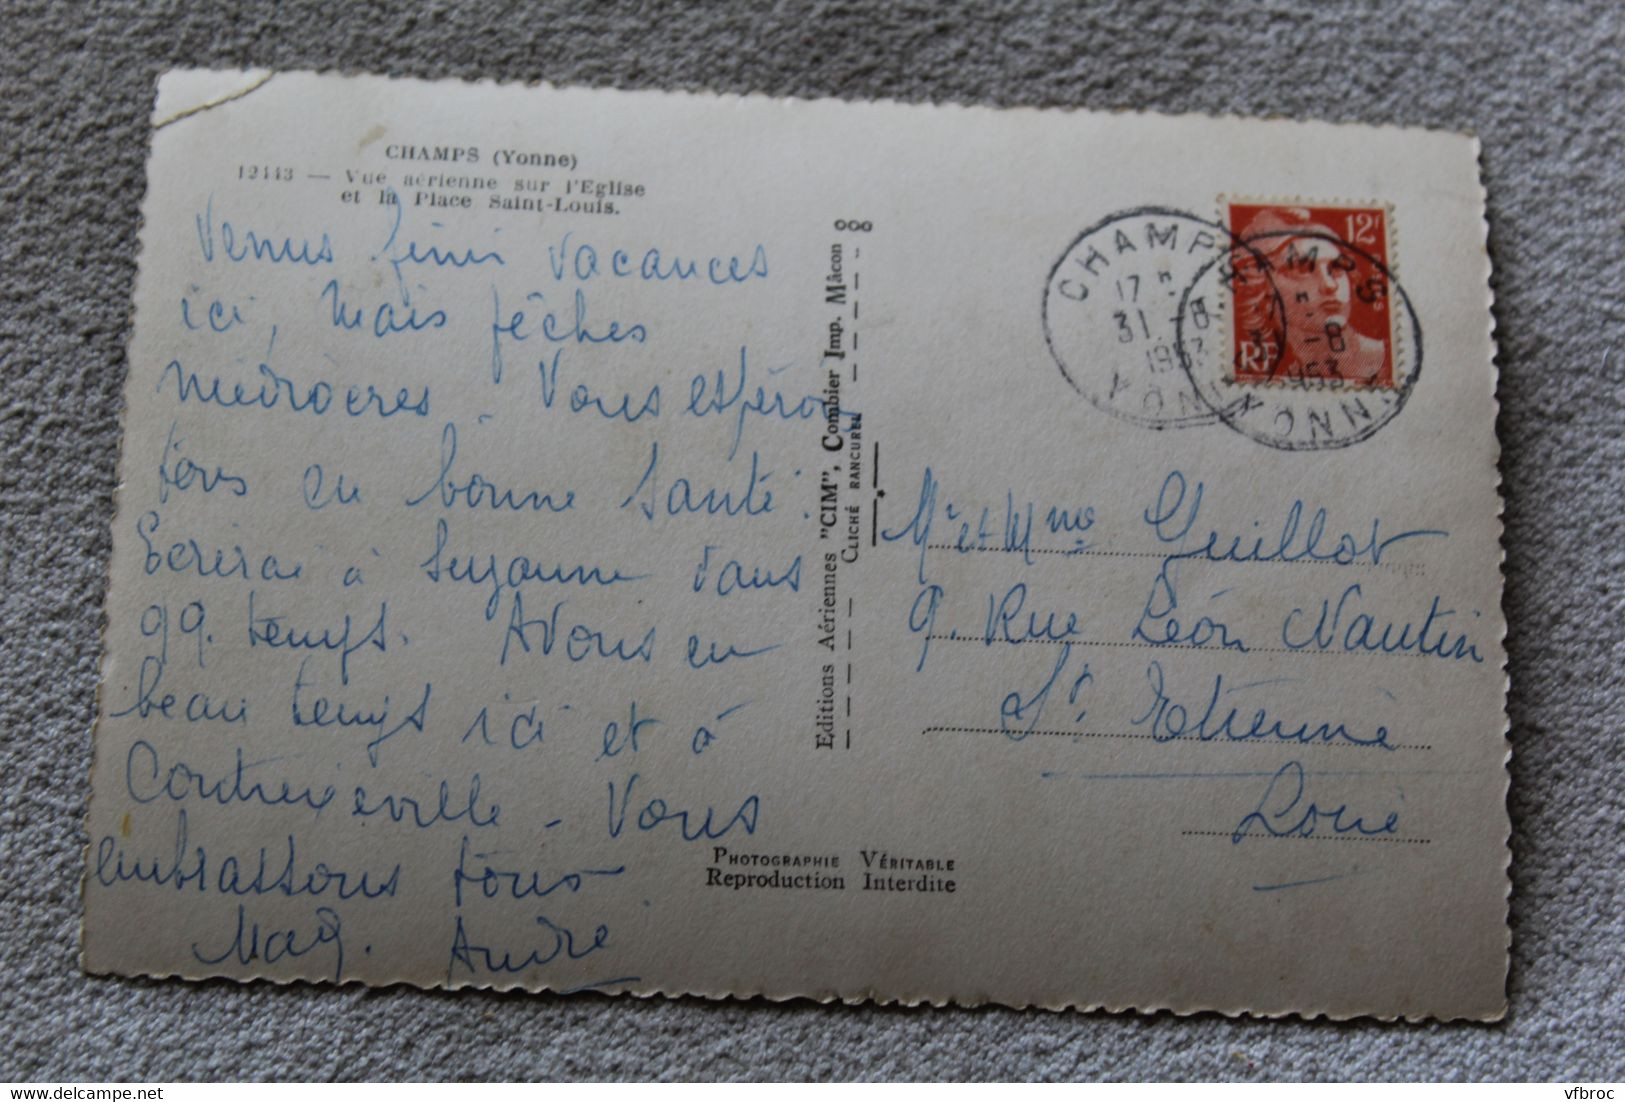 CHAMPS (Yonne)
12443 — Vue aérienne sur l'Eglise
et la Place Saint-Louis.
Venus finir vacances
ici, mais pêches
médiocres. Vous espérons
tous en bonne santé.
Ecrirai à Suzanne dans
qq. temps. Avons eu
beau temps ici et à
Contrexeville - Vous
embrassons tous
Mag. André
Editions Aériennes "CIM", Combier Imp. Mâcon
CLICHÉ RANCUREL
PHOTOGRAPHIE VÉRITABLE
Reproduction Interdite
12F
RF
CHAMPS
17 H
31 -8
1953
YONNE
CHAMPS
17 H
31 -8
1953
YONNE
Mr et Mme Guillot
9. Rue Léon Nautin
St. Etienne
Loire
vfbroc